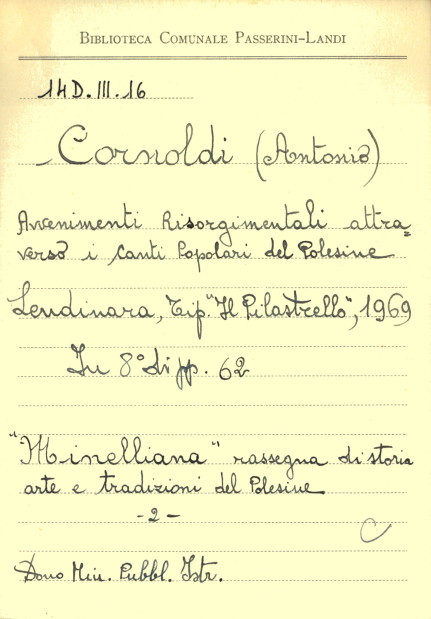 BIBLIOTECA COMUNALE PASSERINI-LANDI
14D.III.16
Cornoldi (Antonio)
Avvenimenti Risorgimentali attra=
verso i Canti Popolari del Polesine
Lendinara, Tip. "Il Pilastrello", 1969
In 8° di pp. 62
"Minelliana" rassegna di storia
arte e tradizioni del Polesine
- 2 -
C
Dono Min. Pubbl. Istr.